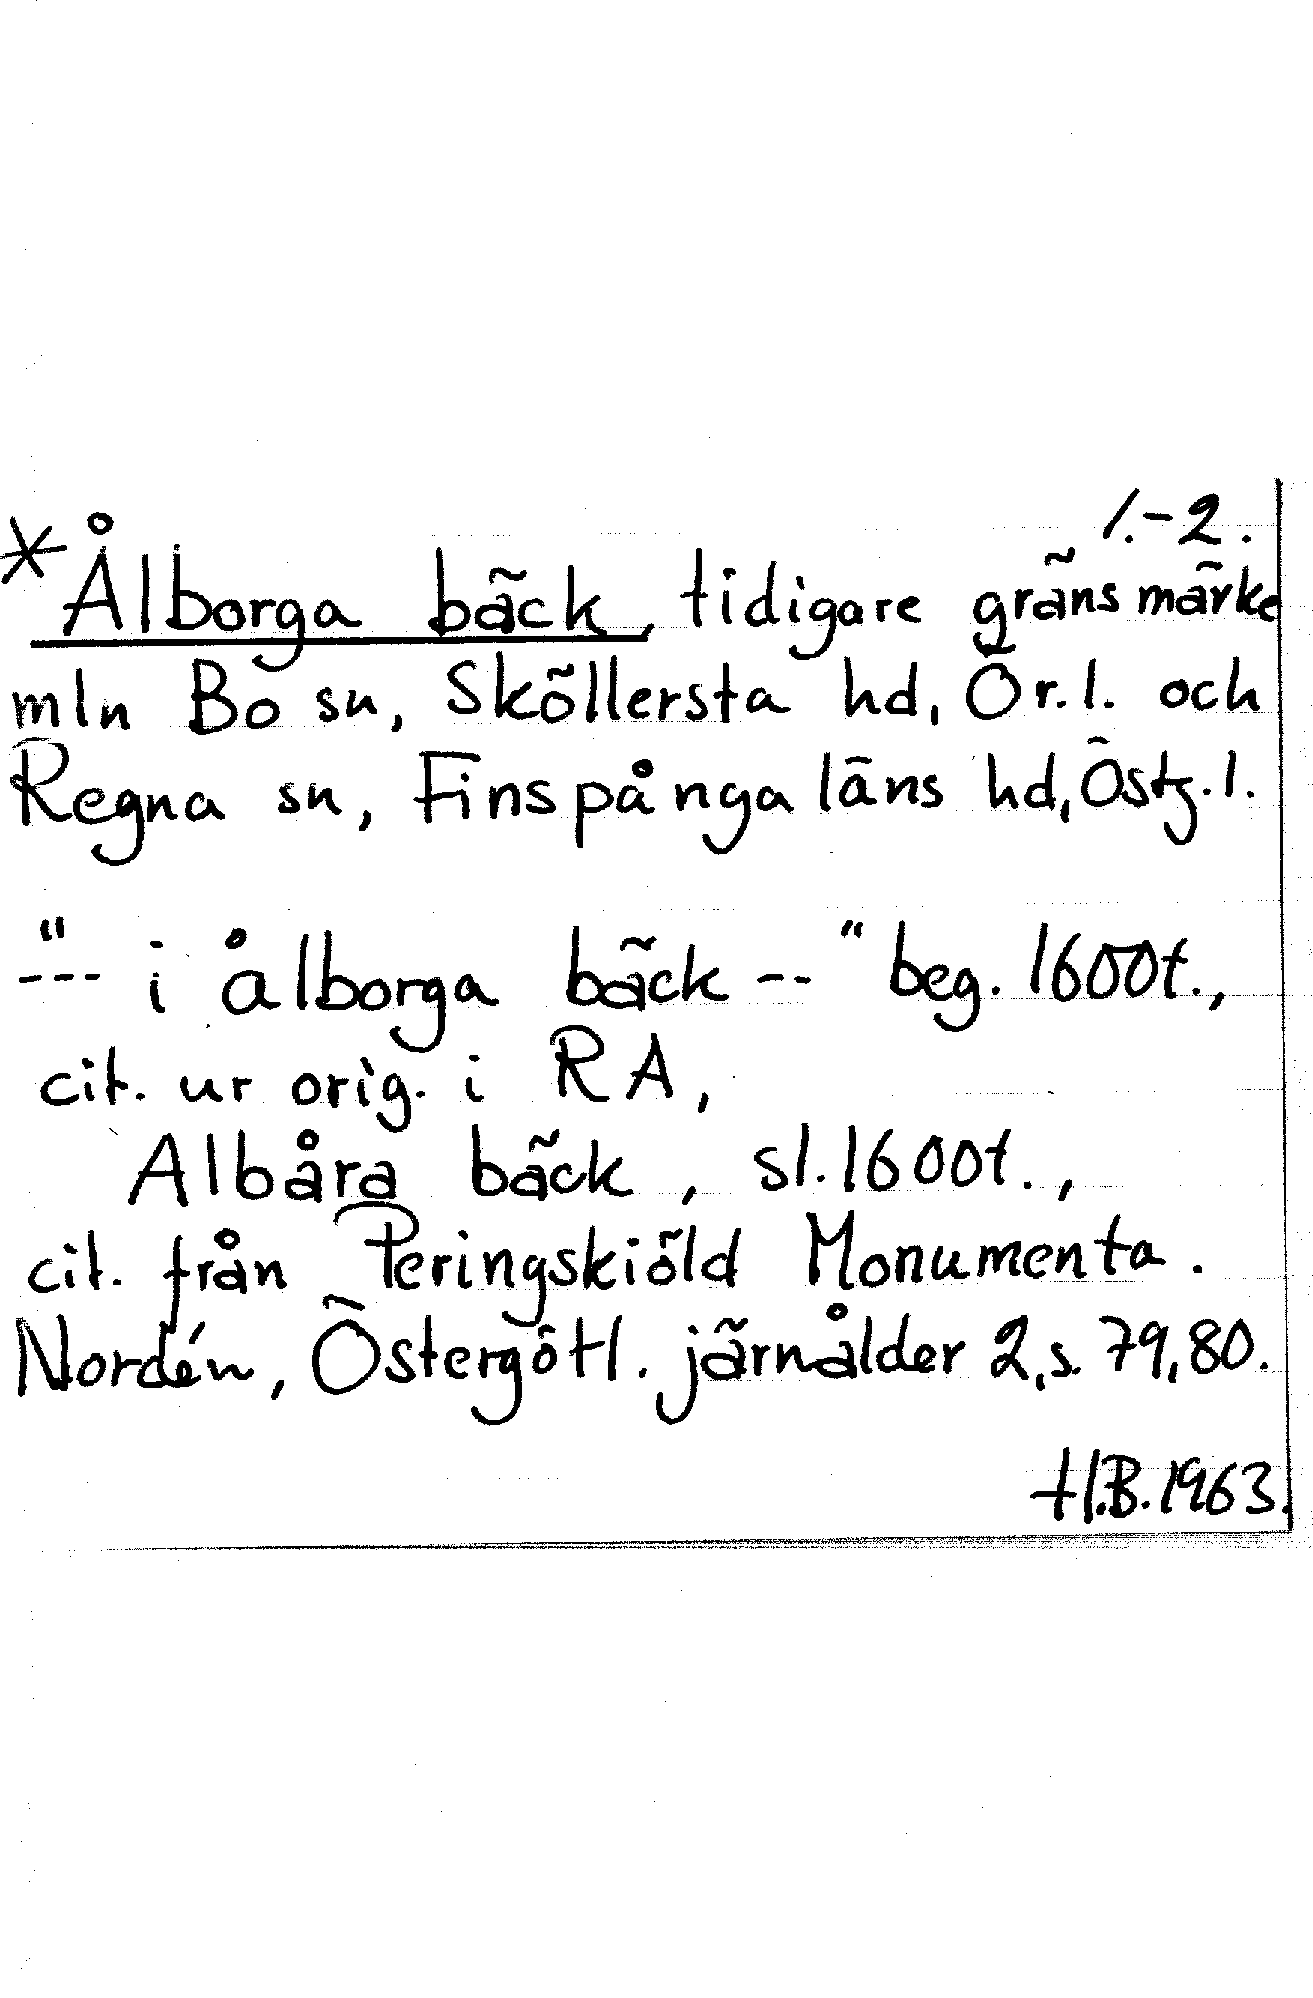 1.-2.
*Ålborga bäck, tidigare gränsmärke
mln Bo sn, Sköllersta hd, Ör.l. och
Regna sn, Finspånga läns hd, Östg.l.
"--- i ålborga bäck --" beg. 1600t.,
cit. ur orig. i RA,
Albåra bäck, sl. 1600t.,
cit. från Peringskiöld Monumenta.
Nordén, Östergötl. järnålder 2, s. 79, 80.
H.B. 1963.